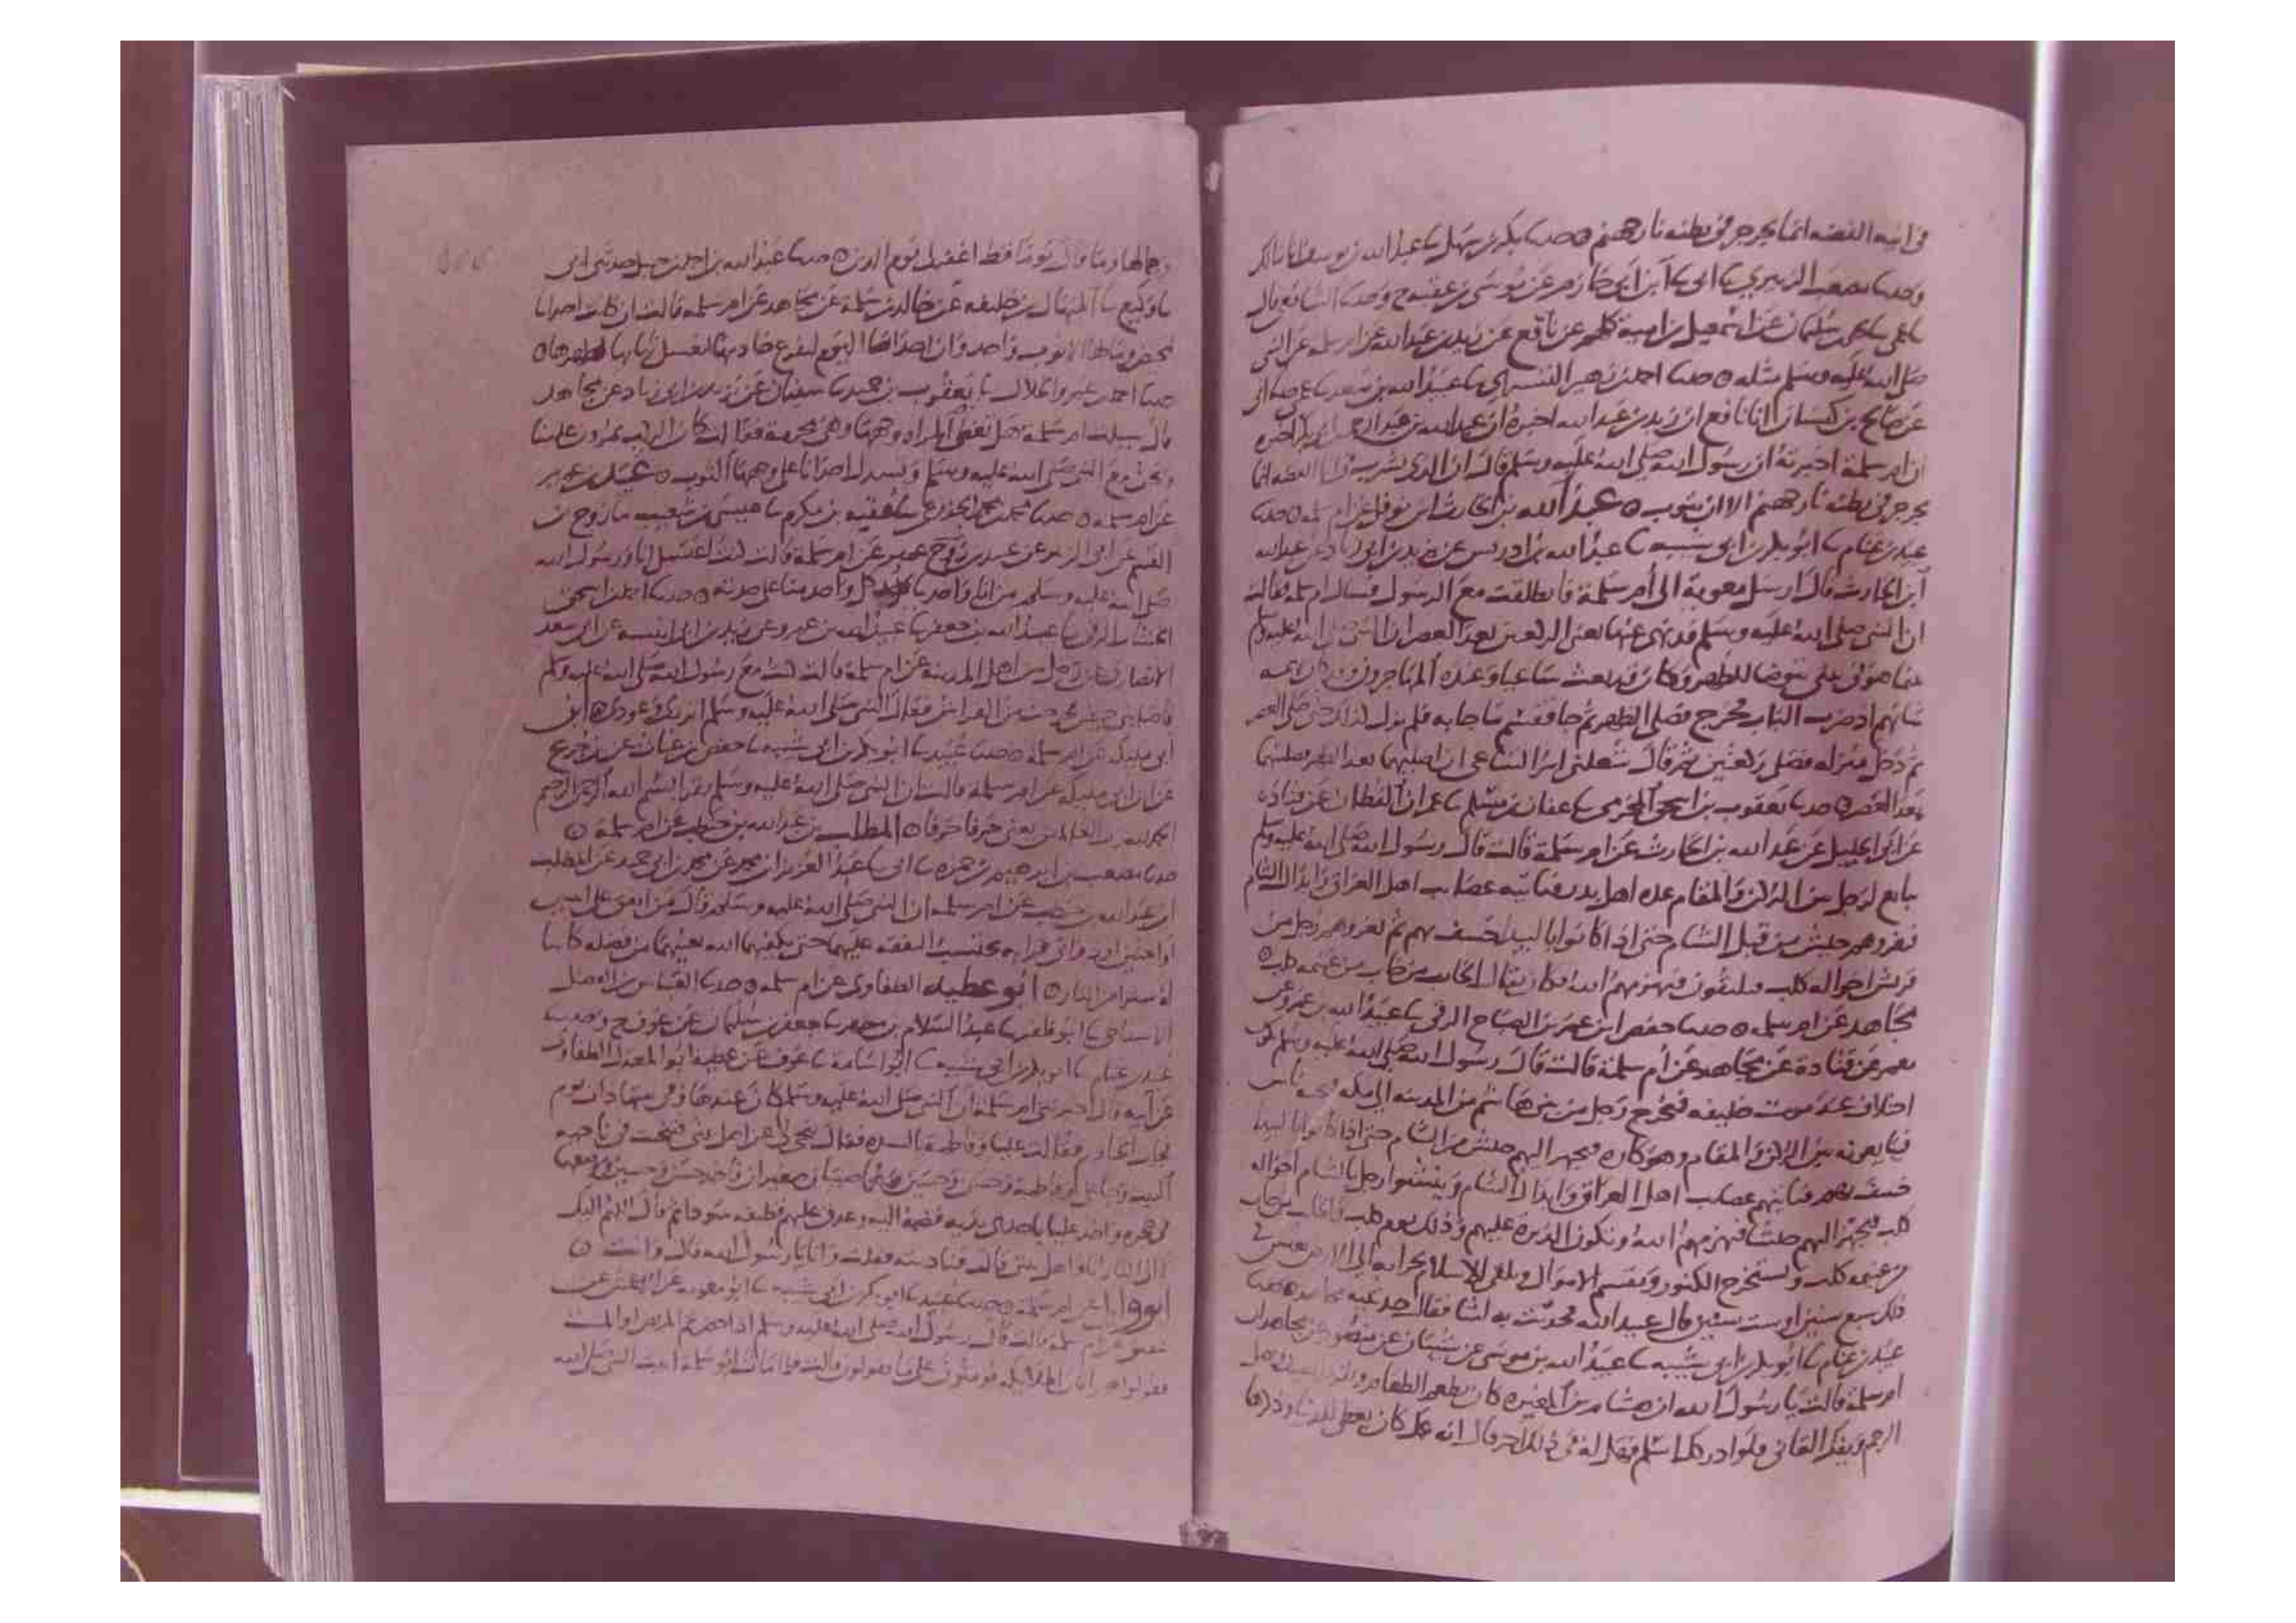 في انية الفضة انما يجرجر في بطنه نار جهنم ۞ حدثنا بكر بن سهل ثنا عبد الله بن يوسف انا مالك
وحدثنا مصعب الزبيري ثنا ابي ثنا ابن ابي حازم عن موسى بن عقبة ح وحدثنا
عن اسمعيل بن امية كلهم عن نافع عن زيد بن عبد الله عن ام سلمة عن النبي
صلى الله عليه وسلم مثله ۞ حدثنا احمد بن زهير التستري ثنا عبيد الله بن سعد ثنا عمي ثنا ابي
عن صالح بن كيسان انا نافع ان زيد بن عبد الله اخبره ان عبد الله بن عبد الرحمن اخبره
ان ام سلمة اخبرته ان رسول الله صلى الله عليه وسلم قال ان الذي يشرب في انا الفضة انما
يجرجر في بطنه نار جهنم الا ان يتوب ۞ عبد الله بن الحارث بن نوفل عن ام سلمة ۞ حدثنا
عبيد بن غنام ثنا ابو بكر بن ابي شيبة ثنا عبد الله بن ادريس عن يزيد بن ابي زياد عن عبد الله
ابن الحارث قال ارسل معوية الى ام سلمة فانطلقت مع الرسول فسال ام سلمة فقالت
ان النبي صلى الله عليه وسلم قد نهى عنها يعني الركعتين بعد العصر ان النبي صلى الله عليه وسلم
بينما هو في بيتي يتوضا للظهر وكان قد بعث ساعيا وعنده المهاجرون وكان
شانهم اذ ضرب الباب فخرج فصلى الظهر ثم جلس يقسم ما جا به فلم يزل كذلك حتى صلى العصر
ثم دخل منزله فصلى ركعتين ثم قال شغلني امر الساعي ان اصليهما بعد الظهر فصليتهما
بعد العصر ۞ حدثنا يعقوب بن اسحق المخرمي ثنا عفان بن مسلم ثنا عمران القطان عن قتادة
عن ابي الخليل عن عبد الله بن الحارث عن ام سلمة قالت قال رسول الله صلى الله عليه وسلم
يبايع لرجل بين الركن والمقام عدة اهل بدر فتاتيه عصايب اهل العراق وابدال الشام
فيغزوهم جيش من قبل الشام حتى اذا كانوا بالبيدا خسف بهم ثم يغزوهم رجل من
قريش اخواله كلب فيلتقون فيهزمهم الله فكان يقال الخايب من خاب من غنيمة كلب ۞
مجاهد عن ام سلمة ۞ حدثنا حفص بن عمر بن الصباح الرقي ثنا عبيد الله بن عمرو عن
معمر عن قتادة عن مجاهد عن ام سلمة قالت قال رسول الله صلى الله عليه وسلم يكون
اختلاف عند موت خليفة فيخرج رجل من بني هاشم من المدينة الى مكة فيجيه ناس
فيبايعونه بين الركن والمقام وهو كاره فيجهز اليهم جيش من الشام حتى اذا كانوا بالبيدا
خسف بهم فتاتيهم عصايب اهل العراق وابدال الشام وينشوا رجل بالشام اخواله
كلب فيجهز اليهم جيشا فيهزمهم الله وتكون الدبرة عليهم وذلك يوم كلب فالخايب من خاب
من غنيمة كلب ويستخرج الكنوز ويقسم الاموال ويلقى الاسلام بجرانه الى الارض يعيش في
ذلك سبع سنين او ست سنين قال عبيد الله فحدثت به ليثا فقال حدثنيه مجاهد ۞ حدثنا
عبيد بن غنام ثنا ابو بكر بن ابي شيبة ثنا عبيد الله بن موسى عن شيبان عن منصور عن مجاهد ان
ام سلمة قالت يا رسول الله ان هشام بن المغيرة كان يطعم الطعام ويصل
الرحم ويفك العاني ولو ادرك اسلم فهل له في ذلك اجر قال انه كان يعطي للدنيا وذكرها
وجمالها وما قال يوما قط اغفر لي يوم الدين ۞ حدثنا عبد الله بن احمد بن حنبل حدثني ابي
ثنا وكيع ثنا المنهال بن خليفة عن خالد بن سلمة عن مجاهد عن ام سلمة قالت ان كانت احدانا
تحيض ومالها الا ثوب واحد وان احداكن اليوم لتفرغ خادمها لغسل ثيابها لطهرها ۞
حدثنا احمد بن عمرو الخلال ثنا يعقوب بن حميد ثنا سفيان عن يزيد بن ابي زياد عن مجاهد
قال سيلت ام سلمة هل تغطي المراة وجهها وهي محرمة فقالت كان الركب يمرون علينا
ونحن مع النبي صلى الله عليه وسلم وتسدل احدانا على وجهها الثوب ۞ عبيد بن عمير
عن ام سلمة ۞ حدثنا محمد بن محمد الجذوعي ثنا عقبة بن مكرم ثنا عيسى بن شعيب ثنا روح بن
القسم عن ابي الزبير عن عبيد بن عمير عن ام سلمة قالت كنت اغتسل انا ورسول الله
صلى الله عليه وسلم من انا واحد كل واحد منا على حدته ۞ حدثنا احمد بن اسحق
الخشاب الرقي ثنا عبد الله بن جعفر ثنا عبيد الله بن عمرو عن زيد بن ابي انيسة عن ابي سعد
الانصاري عن رجل من اهل المدينة عن ام سلمة قالت كنت مع رسول الله صلى الله عليه وسلم
فقال النبي صلى الله عليه وسلم اتزري وعودي ۞ ابن
ابي مليكة عن ام سلمة ۞ حدثنا عبيد ثنا ابو بكر بن ابي شيبة ثنا حفص بن غياث عن ابن جريج
عن ابن ابي مليكة عن ام سلمة قالت ان النبي صلى الله عليه وسلم يقرا بسم الله الرحمن الرحيم
الحمد لله رب العالمين يعني حرفا حرفا ۞ المطلب بن عبد الله بن حنطب عن ام سلمة ۞
حدثنا مصعب بن ابرهيم بن حمزة ثنا ابي ثنا عبد العزيز بن محمد عن محمد بن ابي حميد عن المطلب
ابن عبد الله بن حنطب عن ام سلمة ان النبي صلى الله عليه وسلم قال من انفق على ابنتين
او اختين او ذواتي قرابة يحتسب النفقة عليهما حتى يكفيهما الله يغنيهما من فضله كانتا
له سترا من النار ۞ ابو عطية الطفاوي عن ام سلمة ۞ حدثنا العباس بن الفضل
الاسفاطي ثنا ابو ظفر ثنا عبد السلام بن مطهر ثنا جعفر بن سليمان عن عوف ح وحدثنا
عبيد بن غنام ثنا ابو بكر بن ابي شيبة ثنا ابو اسامة ثنا عوف عن عطية ابو المعدل الطفاوي
عن ابيه قال اخبرتني ام سلمة ان النبي صلى الله عليه وسلم كان عندها في بيتها ذات يوم
فجات الخادم فقالت علي وفاطمة بالسدة فقال تنحي لي عن اهل بيتي فتنحت في ناحية
البيت فدخل علي وفاطمة وحسن وحسين وهما صبيان صغيران فاخذ حسن وحسين فوضعهما
في حجره واخذ عليا باحدى يديه فضمه اليه وعدف عليهم قطيفة سودا ثم قال اللهم اليك
لا الى النار انا واهل بيتي قالت فناديته فقلت وانا يا رسول الله قال وانت ۞
ابو وايل عن ام سلمة ۞ حدثنا عبيد ثنا ابو بكر بن ابي شيبة ثنا ابو معوية عن الاعمش عن
شقيق عن ام سلمة قالت قال رسول الله صلى الله عليه وسلم اذا حضرتم المريض او الميت
فقولوا خيرا فان الملايكة يومنون على ما تقولون قالت فلما مات ابو سلمة اتيت النبي صلى الله